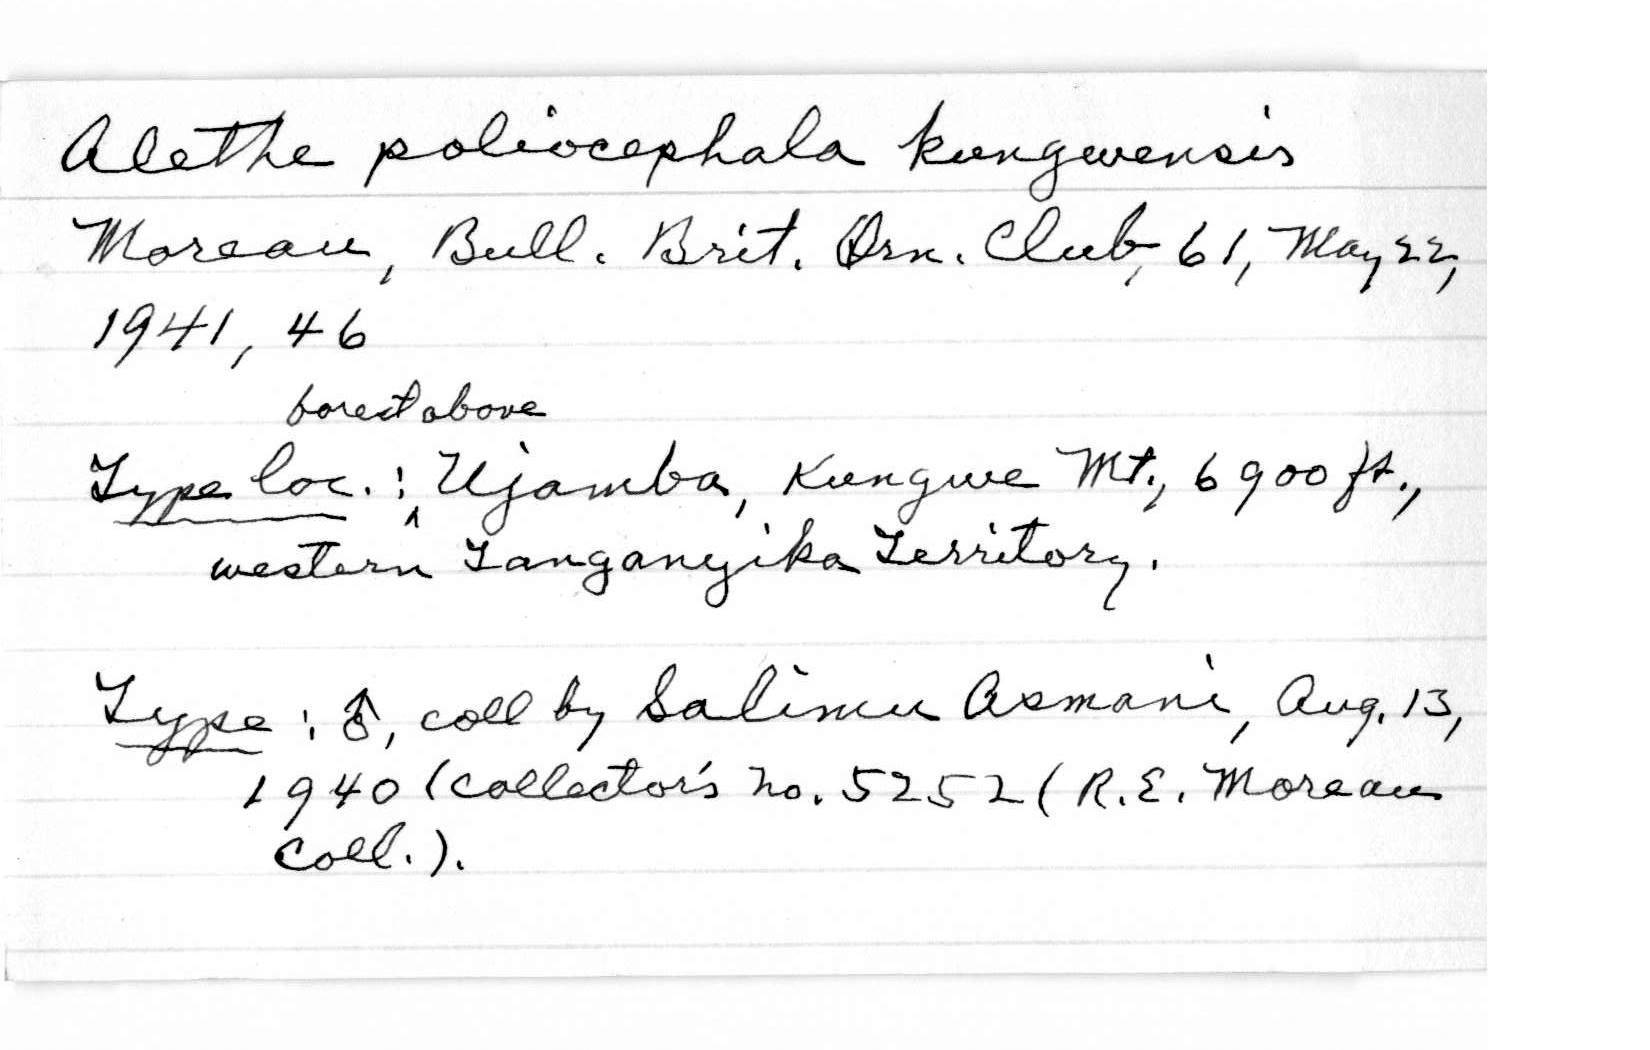 Alethe poliocephala kungwensis
Moreau, Bull. Brit. Orn. Club, 61, May 22,
1941, 46
forest above
Type loc.: ^ Ujamba, Kungwe Mt., 6900 ft.,
western Tanganyika Territory.
Type: ♂, coll by Salimu Asmani, Aug. 13,
1940 (collector's no. 5252 (R.E. Moreau
Coll.).